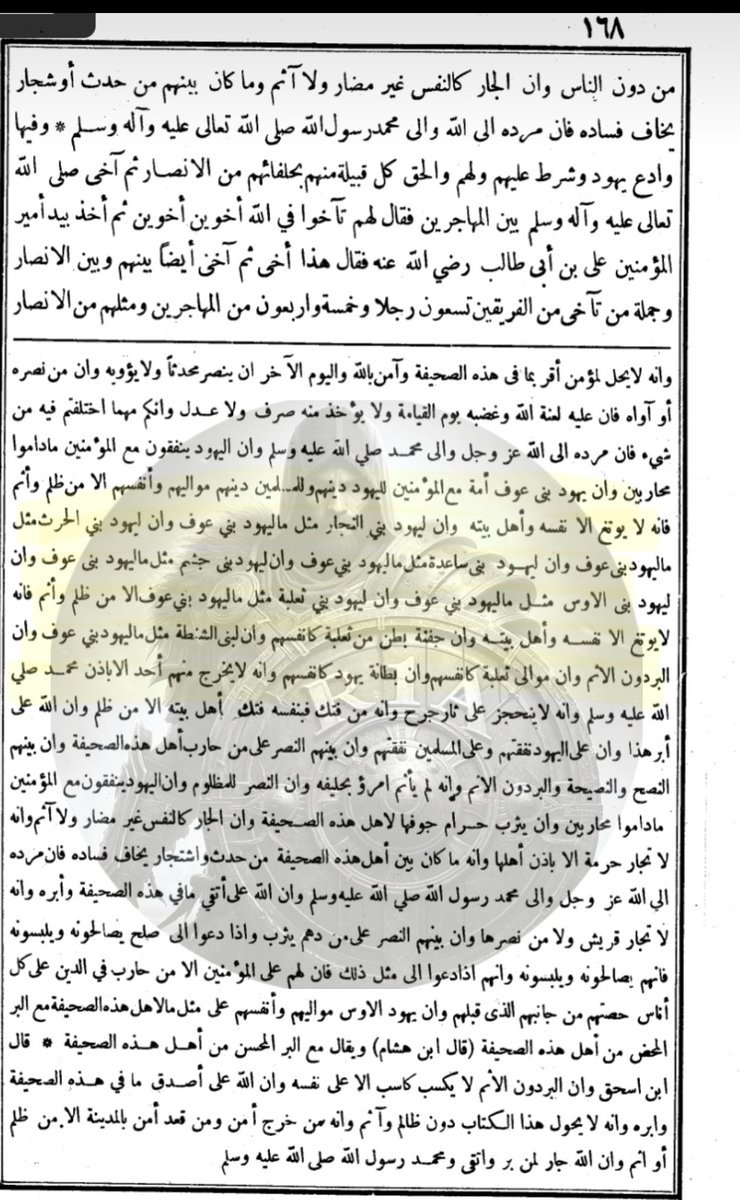 ١٦٨
من دون الناس وان الجار كالنفس غير مضار ولا آثم وما كان بينهم من حدث أو شجار
يخاف فساده فان مرده الى الله والى محمد رسول الله صلى الله تعالى عليه وآله وسلم * وفيها
وادع يهود وشرط عليهم ولهم والحق كل قبيلة منهم بحلفائهم من الانصار ثم آخى صلى الله
تعالى عليه وآله وسلم بين المهاجرين فقال لهم تآخوا في الله أخوين أخوين ثم أخذ بيد أمير
المؤمنين على بن أبى طالب رضي الله عنه فقال هذا أخى ثم آخى أيضاً بينهم وبين الانصار
وجملة من تآخى من الفريقين تسعون رجلا وخمسة واربعون من المهاجرين ومثلهم من الانصار
وانه لا يحل لمؤمن أقر بما فى هذه الصحيفة وآمن بالله واليوم الآخر ان ينصر محدثاً ولا يؤويه وان من نصره
أو آواه فان عليه لعنة الله وغضبه يوم القيامة ولا يؤخذ منه صرف ولا عدل وانكم مهما اختلفتم فيه من
شيء فان مرده الى الله عز وجل والى محمد صلي الله عليه وسلم وان اليهود ينفقون مع المؤمنين ماداموا
محاربين وان يهود بنى عوف أمة مع المؤمنين لليهود دينهم وللمسلمين دينهم مواليهم وأنفسهم الا من ظلم وأثم
فانه لا يوتغ الا نفسه وأهل بيته وان ليهود بني النجار مثل ماليهود بني عوف وان ليهود بني الحرث مثل
ماليهود بنى عوف وان ليهود بنى ساعدة مثل ماليهود بني عوف وان ليهود بنى جشم مثل ماليهود بنى عوف وان
ليهود بنى الاوس مثل ماليهود بني عوف وان ليهود بني ثعلبة مثل ماليهود بني عوف الا من ظلم وأثم فانه
لا يوتغ الا نفسه وأهل بيته وان جفنة بطن من ثعلبة كانفسهم وان لبنى الشنطة مثل ماليهود بني عوف وان
البر دون الاثم وان موالى ثعلبة كانفسهم وان بطانة يهود كانفسهم وانه لا يخرج منهم أحد الا باذن محمد صلي
الله عليه وسلم وانه لا ينحجز على ثار جرح وانه من فتك فبنفسه فتك أهل بيته الا من ظلم وان الله على
أبر هذا وان على اليهود نفقتهم وعلى المسلمين نفقتهم وان بينهم النصر على من حارب أهل هذه الصحيفة وان بينهم
النصح والنصيحة والبر دون الاثم وانه لم يأثم امرؤ بحليفه وان النصر للمظلوم وان اليهود ينفقون مع المؤمنين
ماداموا محاربين وان يثرب حرام جوفها لاهل هذه الصحيفة وان الجار كالنفس غير مضار ولا آثم وانه
لا تجار حرمة الا باذن أهلها وانه ما كان بين أهل هذه الصحيفة من حدث واشتجار يخاف فساده فان مرده
الي الله عز وجل والى محمد رسول الله صلي الله عليه وسلم وان الله على أتقي مافي هذه الصحيفة وأبره وانه
لا تجار قريش ولا من نصرها وان بينهم النصر على من دهم يثرب واذا دعوا الى صلح يصالحونه ويلبسونه
فانهم يصالحونه ويلبسونه وانهم اذا دعوا الى مثل ذلك فان لهم على المؤمنين الا من حارب في الدين على كل
أناس حصتهم من جانبهم الذى قبلهم وان يهود الاوس مواليهم وأنفسهم على مثل ما لاهل هذه الصحيفة مع البر
المحض من أهل هذه الصحيفة (قال ابن هشام) ويقال مع البر المحسن من أهل هذه الصحيفة * قال
ابن اسحق وان البر دون الأثم لا يكسب كاسب الا على نفسه وان الله على أصدق ما في هذه الصحيفة
وابره وانه لا يحول هذا الكتاب دون ظالم وآثم وانه من خرج أمن ومن قعد أمن بالمدينة الا من ظلم
أو اثم وان الله جار لمن بر واتقى ومحمد رسول الله صلى الله عليه وسلم